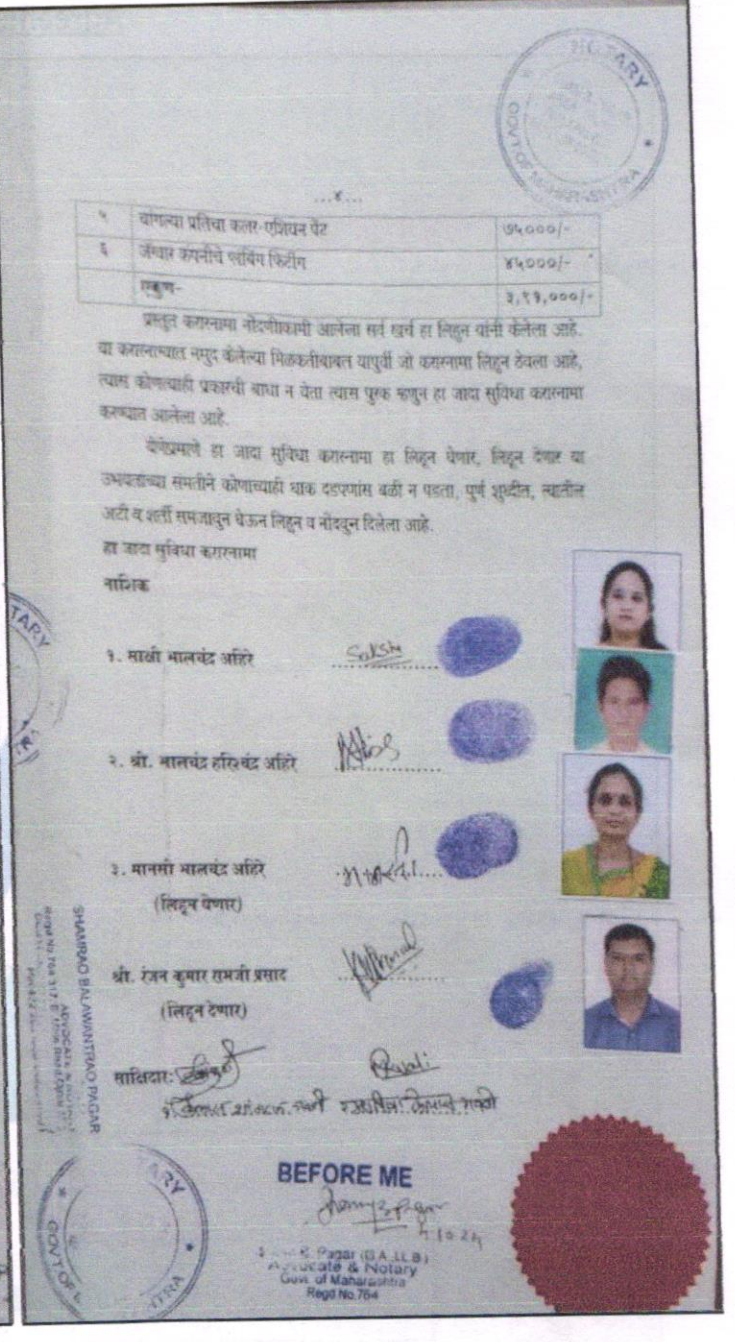 NOTARY
GOVT. OF MAHARASHTRA
...४...
५ चांगल्या प्रतिचा कलर-एशियन पेंट ७५०००/-
६ जॅग्वार कंपनीचे प्लंबिंग फिटींग ४५०००/-
एकुण- ३,११,०००/-
प्रस्तुत करारनामा नोंदणीकामी आलेला सर्व खर्च हा लिहुन यांनी केलेला आहे.
या करारनाम्यात नमुद केलेल्या मिळकतीबाबत यापुर्वी जो करारनामा लिहुन ठेवला आहे,
त्यास कोणत्याही प्रकारची बाधा न येता त्यास पुरक म्हणुन हा जादा सुविधा करारनामा
करण्यात आलेला आहे.
येणेप्रमाणे हा जादा सुविधा करारनामा हा लिहून घेणार, लिहून देणार या
उभयतांच्या संमतीने कोणाच्याही धाक दडपणांस बळी न पडता, पुर्ण शुध्दीत, त्यातील
अटी व शर्ती समजावुन घेऊन लिहुन व नोंदवुन दिलेला आहे.
हा जादा सुविधा करारनामा
नाशिक
१. साक्षी भालचंद्र अहिरे
Sakshi
२. श्री. भालचंद्र हरिश्चंद्र अहिरे
३. मानसी भालचंद्र अहिरे
(लिहून घेणार)
श्री. रंजन कुमार रामजी प्रसाद
(लिहून देणार)
साक्षिदार:
SHAMRAO BALAWANTRAO PAGAR
ADVOCATE &
NOTARY
TARY
BEFORE ME
Pagar (B.A.LL.B)
Advocate & Notary
Govt. of Maharashtra
Regd No.764
NOTARY
GOVT. OF